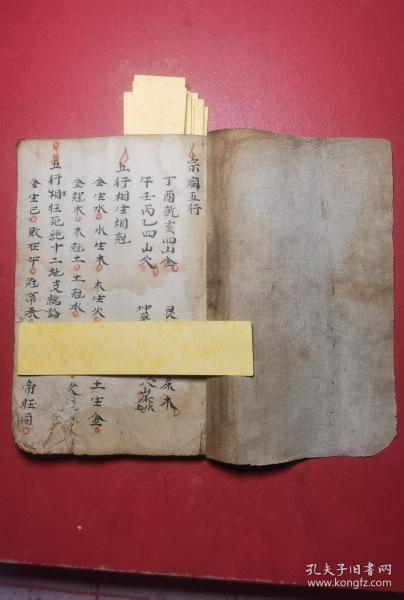 宗廟五行
丁酉乾亥四山金
午壬丙乙四山火
五行相生相尅
金生水 水生木 木生火 土生金
金尅木 木尅土 土尅水
五行相旺死絕十二地支總論
金生巳 敗在午 冠帶 帝旺酉
孔夫子旧书网
www.kongfz.com